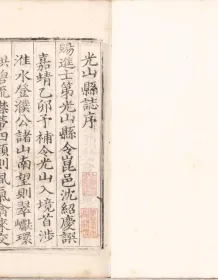 光山縣誌序
賜進士第光山縣令崑邑沈紹慶譔
嘉靖乙卯予補令光山入境首涉
淮水登濮公諸山南望則翠巘環
拱碧流襟帶四顧則風氣會萃